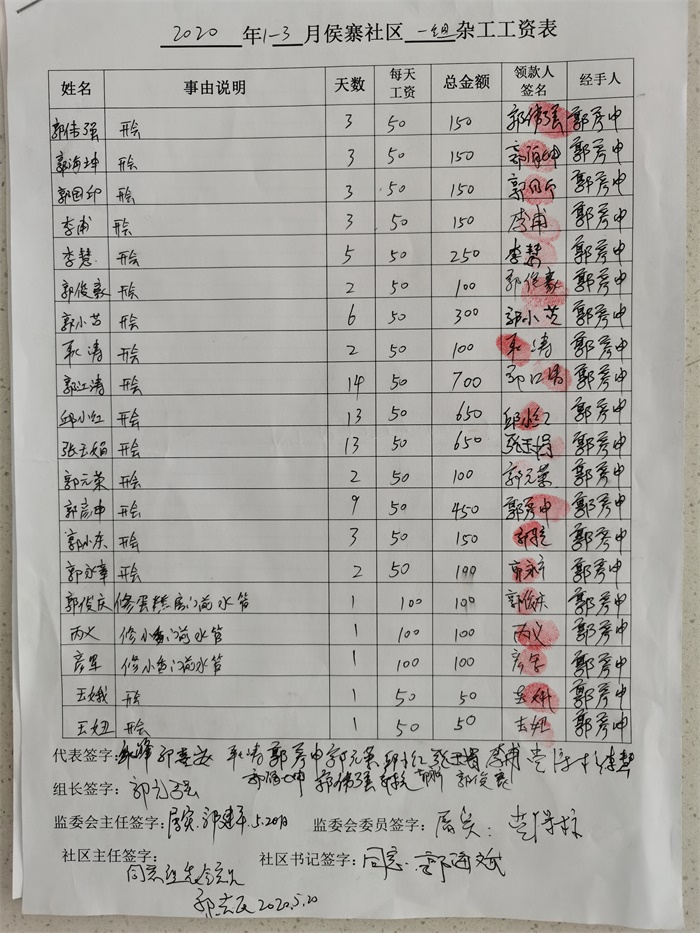 2020 年1-3月侯寨社区 一组 杂工工资表
姓名 事由说明 天数 每天工资 总金额 领款人签名 经手人
郭伟强 开会 3 50 150 郭伟强 郭彦中
郭海坤 开会 3 50 150 郭海坤 郭彦中
郭国印 开会 3 50 150 郭彦中
李甫 开会 3 50 150 李甫 郭彦中
李慧 开会 5 50 250 李慧 郭彦中
郭俊豪 开会 2 50 100 郭俊豪 郭彦中
郭小芸 开会 6 50 300 郭小芸 郭彦中
耿涛 开会 2 50 100 耿涛 郭彦中
郭江涛 开会 14 50 700 郭江涛 郭彦中
邱小红 开会 13 50 650 邱小红 郭彦中
张玉娟 开会 13 50 650 张玉娟 郭彦中
郭元荣 开会 2 50 100 郭元荣 郭彦中
郭彦中 开会 9 50 450 郭彦中 郭彦中
郭小东 开会 3 50 150 郭彦中
郭永章 开会 2 50 100 郭彦中
郭俊庆 修蛋糕房门前水管 1 100 100 郭俊庆 郭彦中
丙义 修小鱼门前水管 1 100 100 丙义 郭彦中
彦军 修小鱼门前水管 1 100 100 彦军 郭彦中
王娥 开会 1 50 50 王娥 郭彦中
王妞 开会 1 50 50 王妞 郭彦中
代表签字: 耿涛 郭彦中 郭元荣 邱小红 张玉娟 李甫 李慧
郭海坤 郭伟强 郭俊豪
组长签字:
监委会主任签字: 属实. 郭建平. 5.20日 监委会委员签字: 属实:
社区主任签字: 社区书记签字: 同意.
2020.5.20